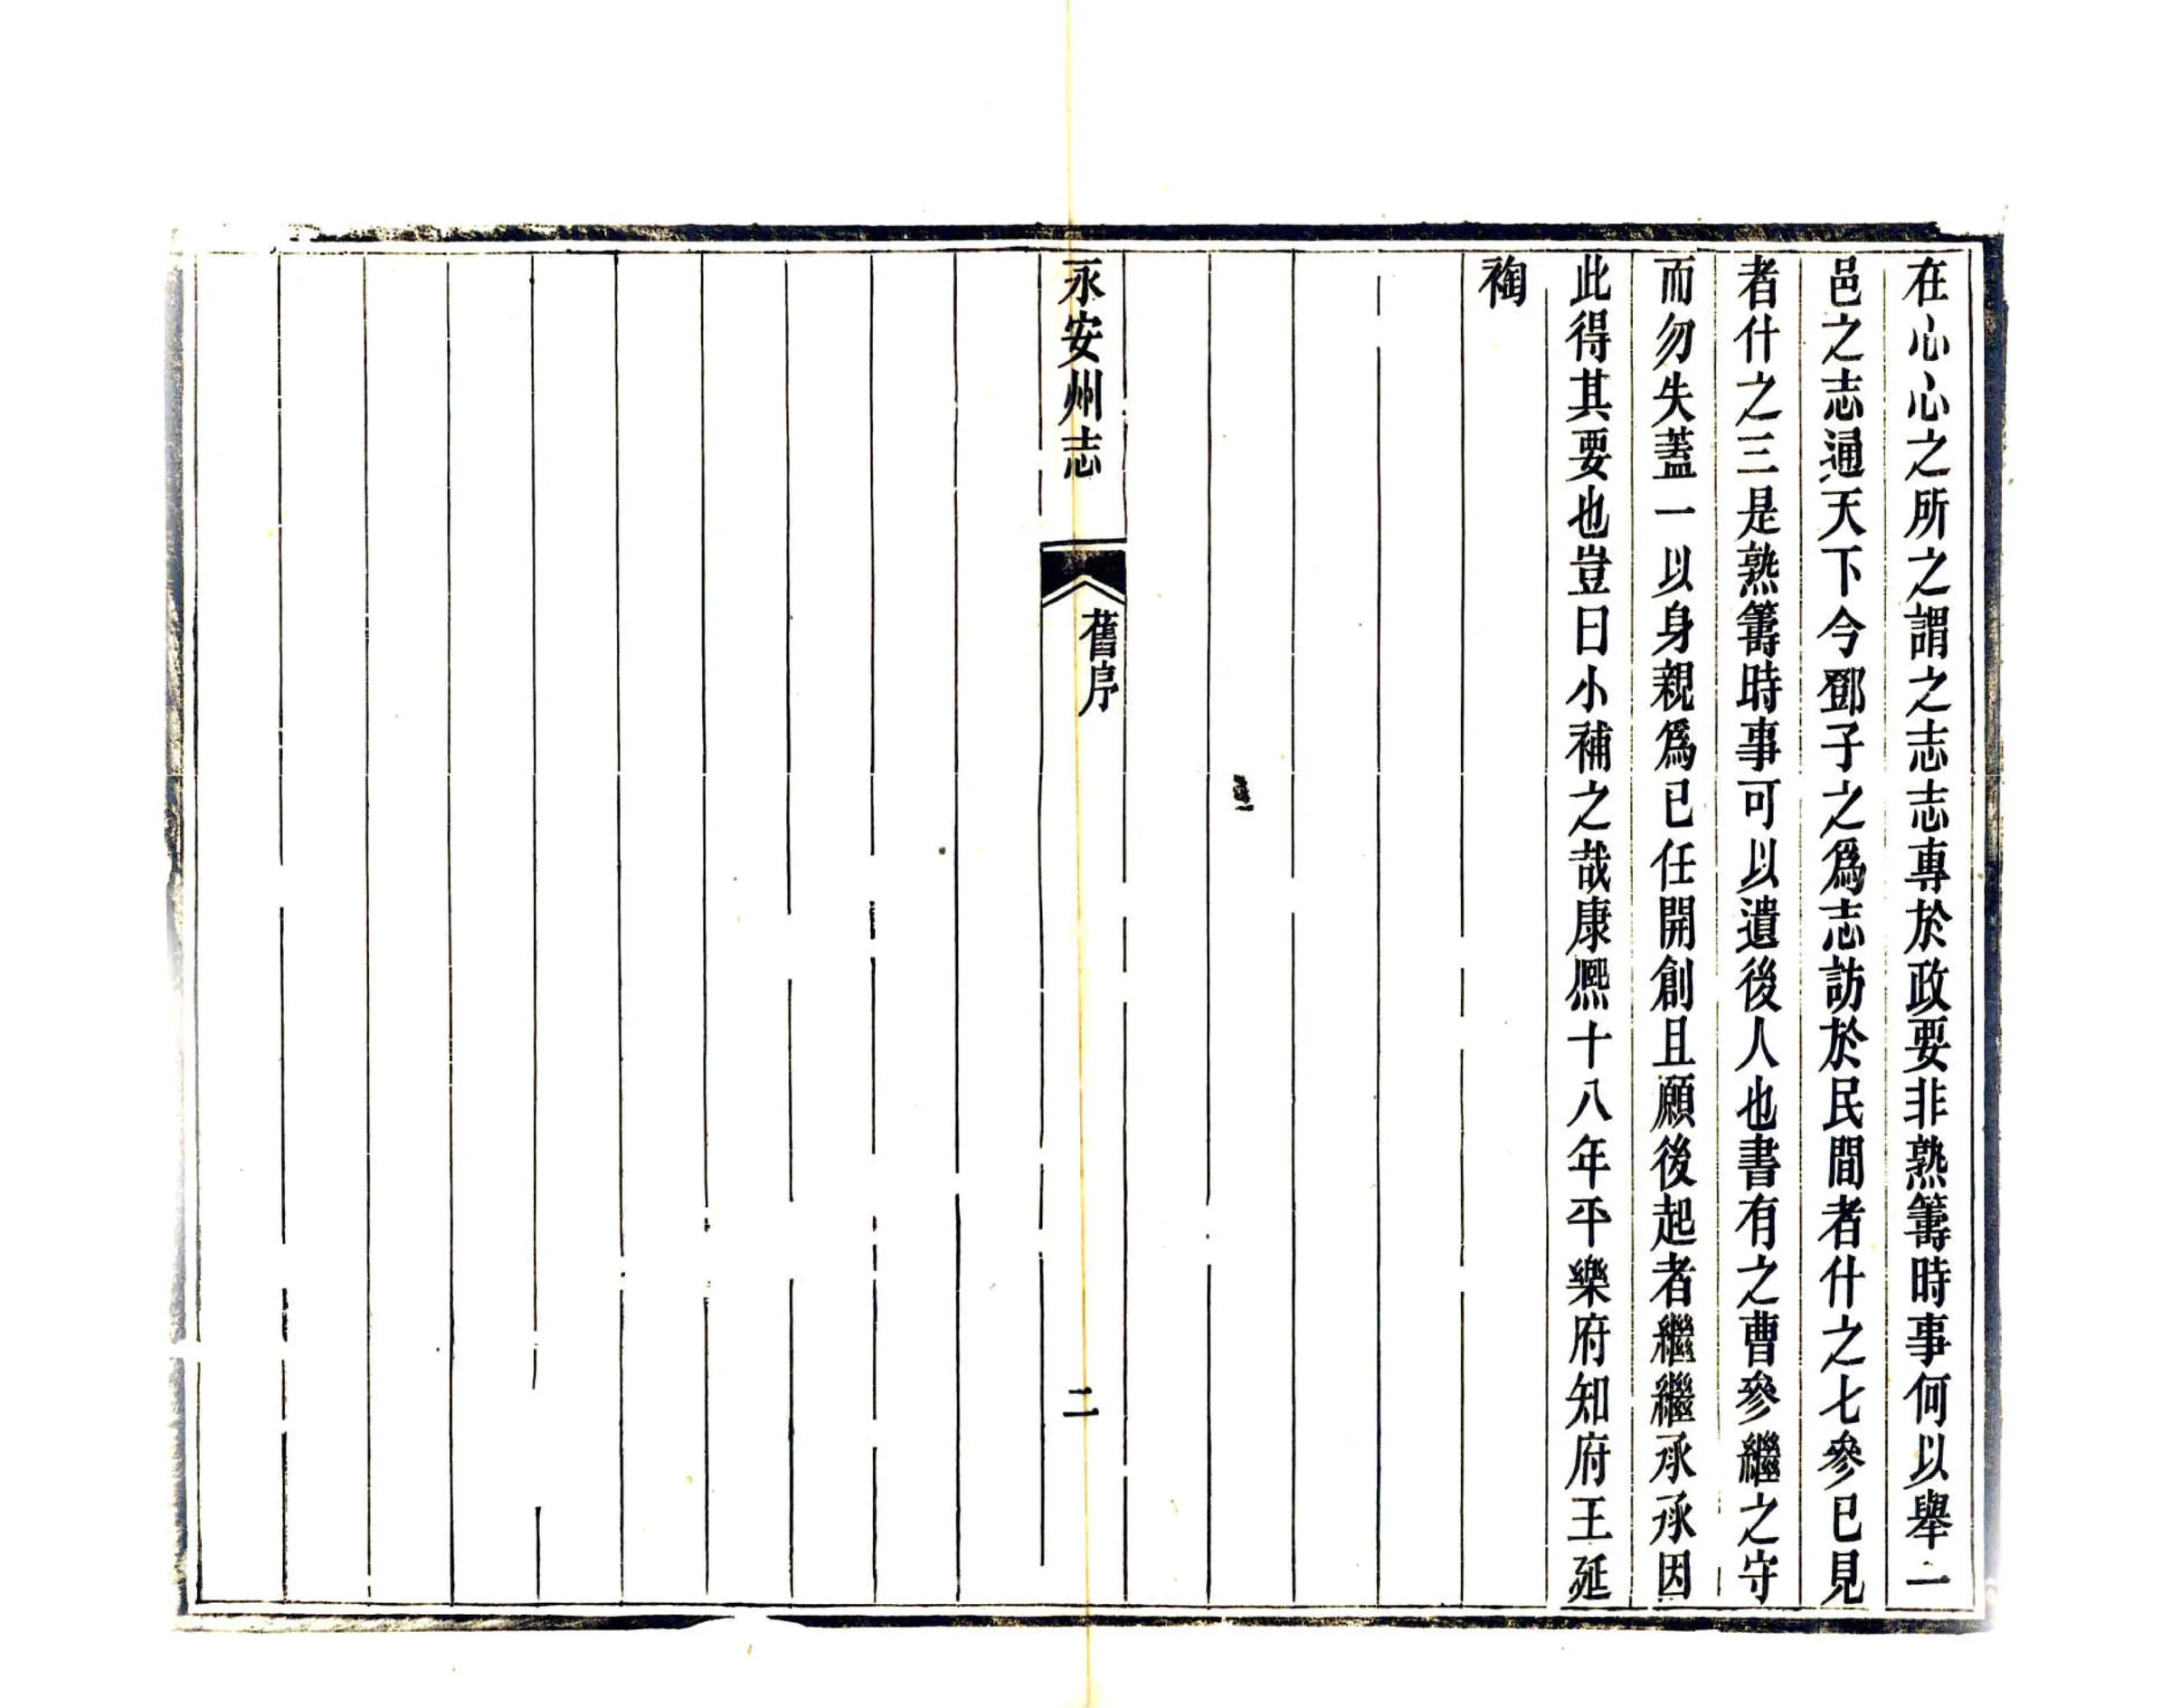 在心心之所之謂之志志專於政要非熟籌時事何以舉一
邑之志通天下今鄧子之爲志訪於民間者什之七參已見
者什之三是熟籌時事可以遺後人也書有之曹參繼之守
而勿失蓋一以身親爲已任開創且願後起者繼繼承承因
此得其要也豈曰小補之哉康熈十八年平樂府知府王延
裪
永安州志
舊序
二